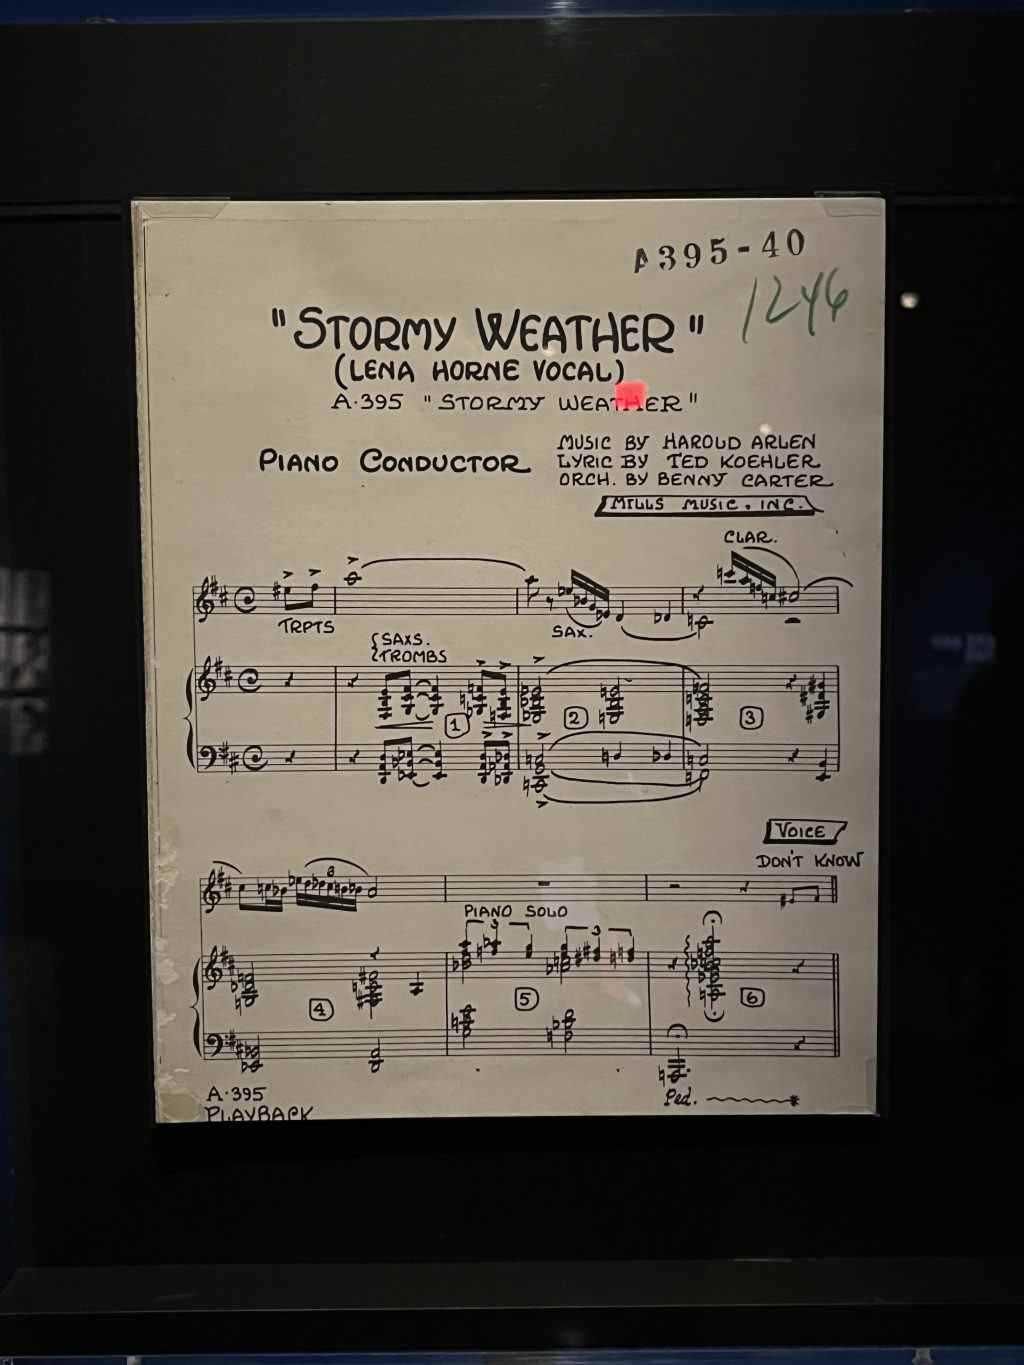 A395-40
1246
"STORMY WEATHER"
(LENA HORNE VOCAL)
A·395 "STORMY WEATHER"
PIANO CONDUCTOR
MUSIC BY HAROLD ARLEN
LYRIC BY TED KOEHLER
ORCH. BY BENNY CARTER
MILLS MUSIC, INC.
CLAR.
TRPTS
SAX.
SAXS.
TROMBS
1
2
3
VOICE
DON'T KNOW
3
PIANO SOLO
3
3
4
5
6
A·395
PLAYBACK
Ped.